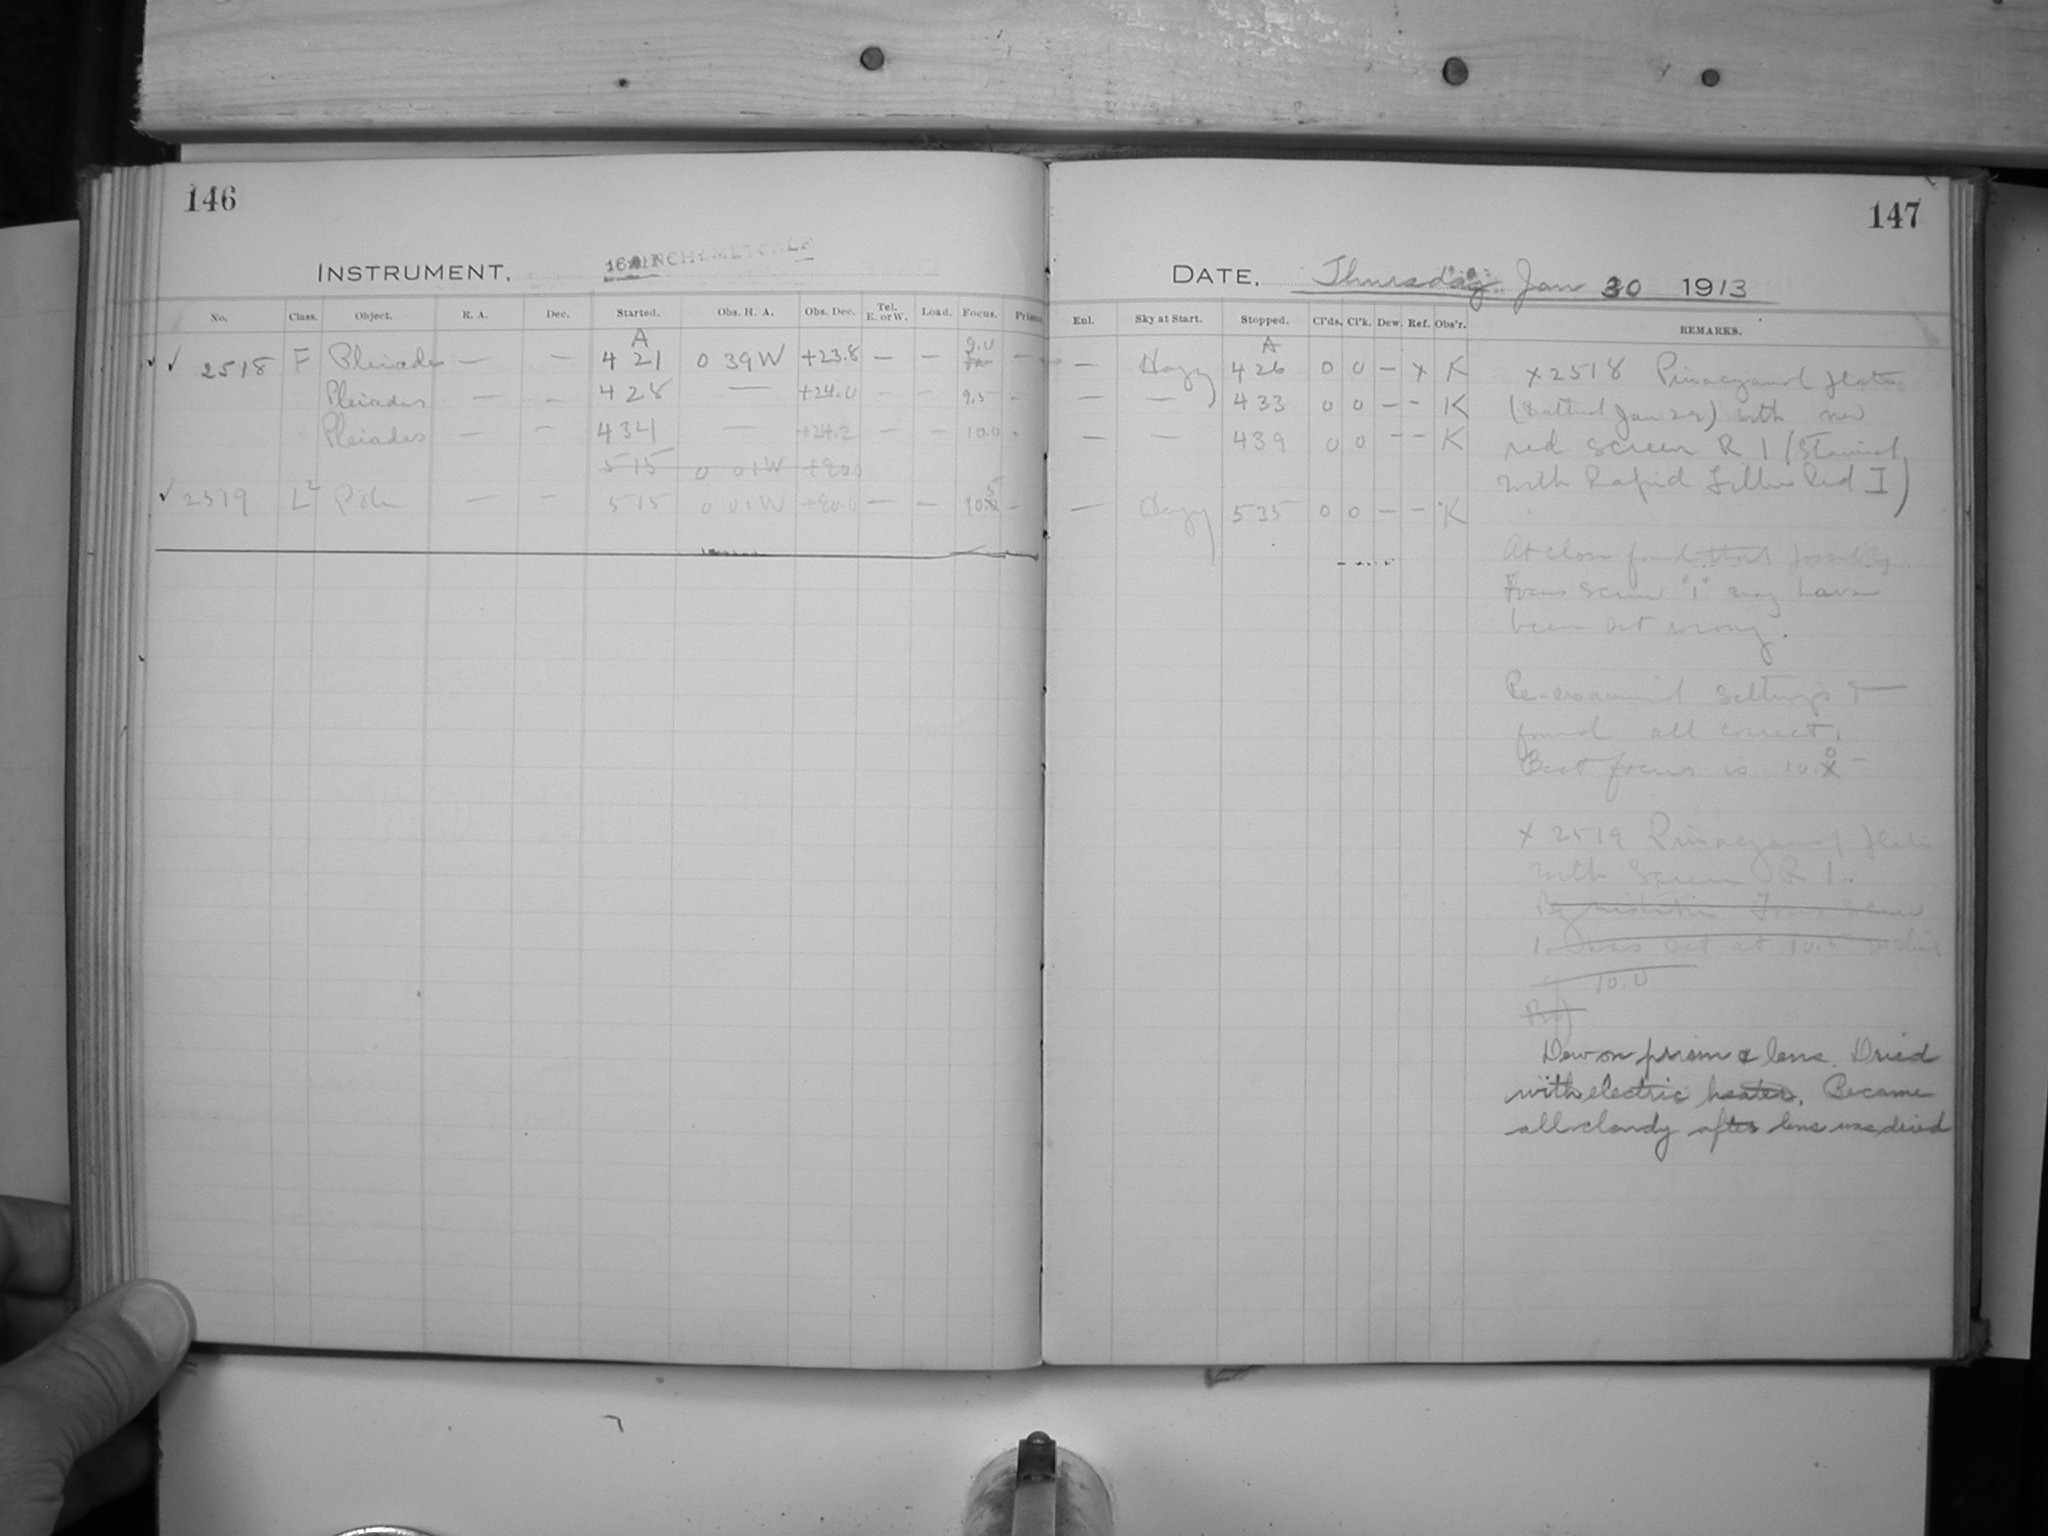 146
INSTRUMENT. 16 INCH METCALF
No. Class. Object. R. A. Dec. Started. Obs. H. A. Obs. Dec. Tel. E. or W. Load. Focus. Prism.
A 9.0
✓ ✓ 2518 F Pleiades — — 4 21 0 39 W +23.8 — — —
Pleiades — — 4 28 — +24.0 — — 9.5 -
Pleiades — — 4 34 — +24.2 — — 10.0 -
5 15 0 01 W +90.0
✓ 2519 L Pole — — 5 15 0 01 W +90.0 — — 10.5 -
147
DATE. Thursday Jan 30 1913
Enl. Sky at Start. Stopped. Cl'ds. Cl'k. Dew. Ref. Obs'r. REMARKS.
A
— Hazy 4 26 0 0 — x K
— — 4 33 0 0 — - K
— — 4 39 0 0 - - K
— Hazy 5 35 0 0 — - K
x 2518 Pinacyanol plate
(Bathed Jan 29) with new
red screen R 1 (Stained
with Rapid Filter Red I)
At close found that possibly
Focus Screw "1" may have
been set wrong.
Re-examined settings &
found all correct.
Best focus is 10.0
x 2519 Pinacyanol plate
with Screen R 1.
By mistake Focus Screw
1 was set at 10.5 instead
of 10.0
Dew on prism & lens. Dried
with electric heater. Became
all cloudy after lens was dried